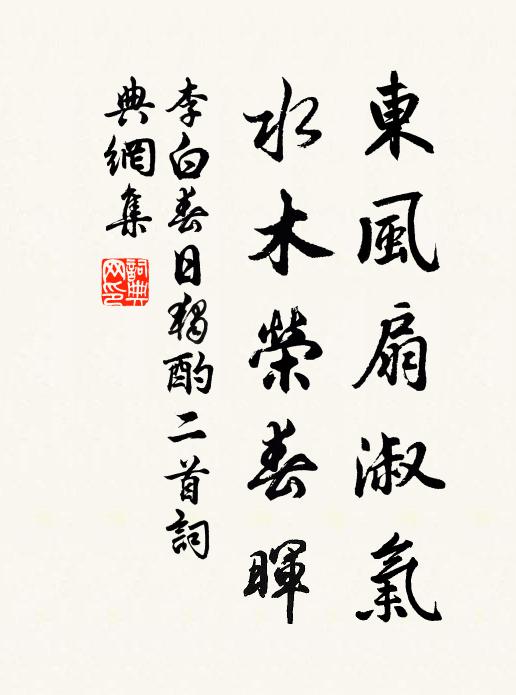 東風扇淑氣
水木榮春暉
李白春日獨酌二首詞
典網集
詞典
网印